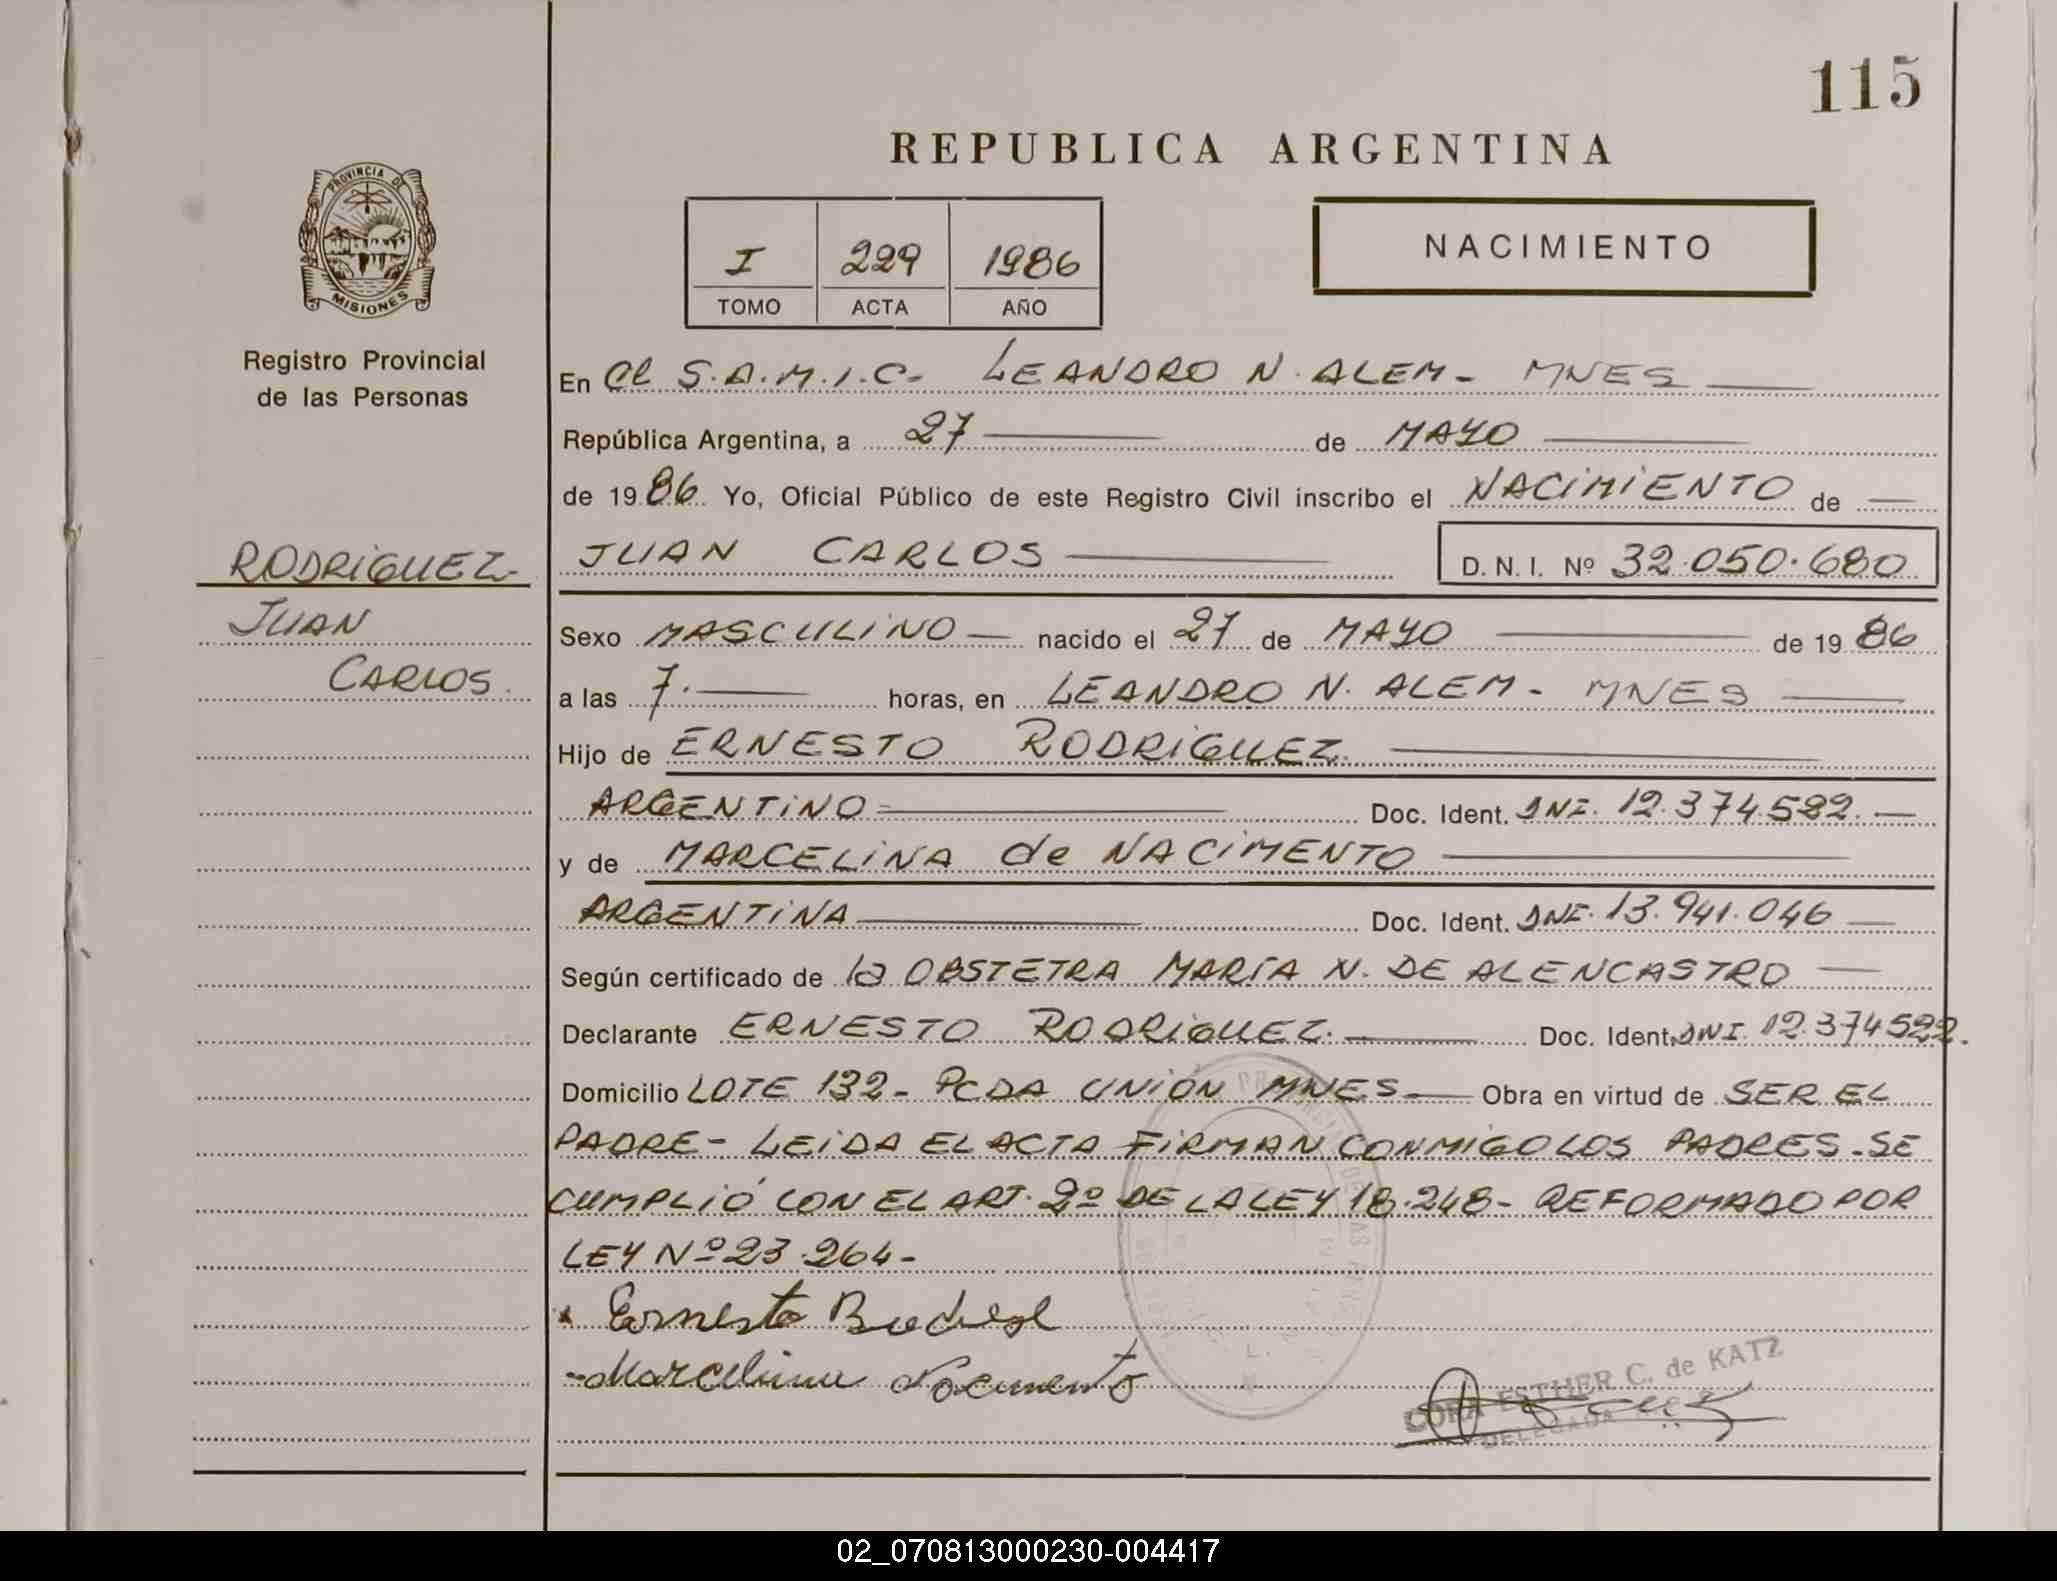 115
REPUBLICA ARGENTINA
PROVINCIA DE
MISIONES
Registro Provincial
de las Personas
I 229 1986
TOMO ACTA AÑO
NACIMIENTO
En el S.A.M.I.C. LEANDRO N. ALEM - MNES
República Argentina, a 27 de MAYO
de 1986 Yo, Oficial Público de este Registro Civil inscribo el NACIMIENTO de
RODRIGUEZ
JUAN CARLOS D.N.I. Nº 32.050.680
JUAN
CARLOS
Sexo MASCULINO nacido el 27 de MAYO de 1986
a las 7. horas, en LEANDRO N. ALEM - MNES
Hijo de ERNESTO RODRIGUEZ
ARGENTINO Doc. Ident. DNI. 12.374.582.
y de MARCELINA de NACIMENTO
ARGENTINA Doc. Ident. DNI. 13.941.046
Según certificado de la OBSTETRA MARÍA N. DE ALENCASTRO
Declarante ERNESTO RODRIGUEZ. Doc. Ident. DNI. 12.374582.
Domicilio LOTE 132 - PCDA UNION MNES Obra en virtud de SER EL
PADRE - LEIDA EL ACTA FIRMAN CONMIGO LOS PADRES. SE
CUMPLIÓ CON EL ART. 2º DE LA LEY 18.248 - REFORMADO POR
LEY Nº 23.264 -
Ernesto
Marcelina
CORA ESTHER C. de KATZ
DELEGADA
02_070813000230-004417